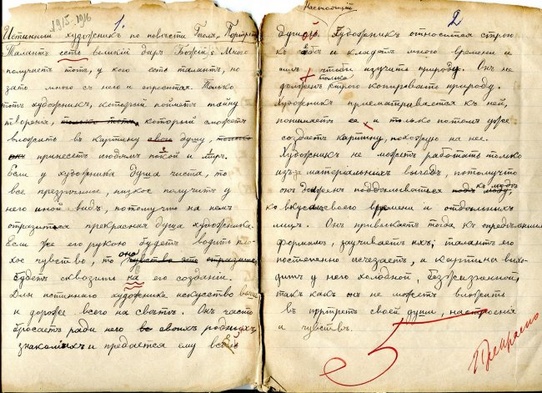 1915-1916
1.
Истинный художникъ по повѣсти Гоголя „Портретъ“
Талантъ есть великій даръ Божій; Много
получаетъ тотъ, у кого есть талантъ, но
зато много съ него и спросится. Только
тотъ художникъ, который пойметъ тайну
творенія, который сможетъ
вложить въ картину свою душу,
принесетъ людямъ покой и миръ.
Если у художника душа чиста, то
все презрѣнное, низкое получитъ у
него иной видъ, потому что на немъ
отразится прекрасная душа художника.
Если же его рукою будетъ водить пло-
хое чувство, то оно
будетъ сквозить на его созданіи.
Для истиннаго художника искусство
и дороже всего на свѣтѣ. Онъ часто
бросаетъ ради него своихъ родныхъ,
знакомыхъ и предается ему всей
2
душой. Художникъ относится строго
къ и кладетъ много времени и
чтобы изучить природу. Онъ не
долженъ только строго копировать природу.
Художникъ приглядывается къ ней,
понимаетъ ее, и только потомъ уже
создаетъ картину, похожую на нее.
Художникъ не можетъ работать только
изъ матеріальныхъ выгодъ, потому что
онъ долженъ поддѣлываться къ модѣ,
ко вкусу своего времени и отдѣльныхъ
лицъ. Онъ привыкаетъ тогда къ опредѣленнымъ
формамъ, заучиваетъ ихъ; талантъ его
постепенно исчезаетъ, и картина выхо-
дитъ у него холодной, безжизненной,
такъ какъ онъ не можетъ вложить
въ портретъ своей души, настроенія
и чувствъ.
5